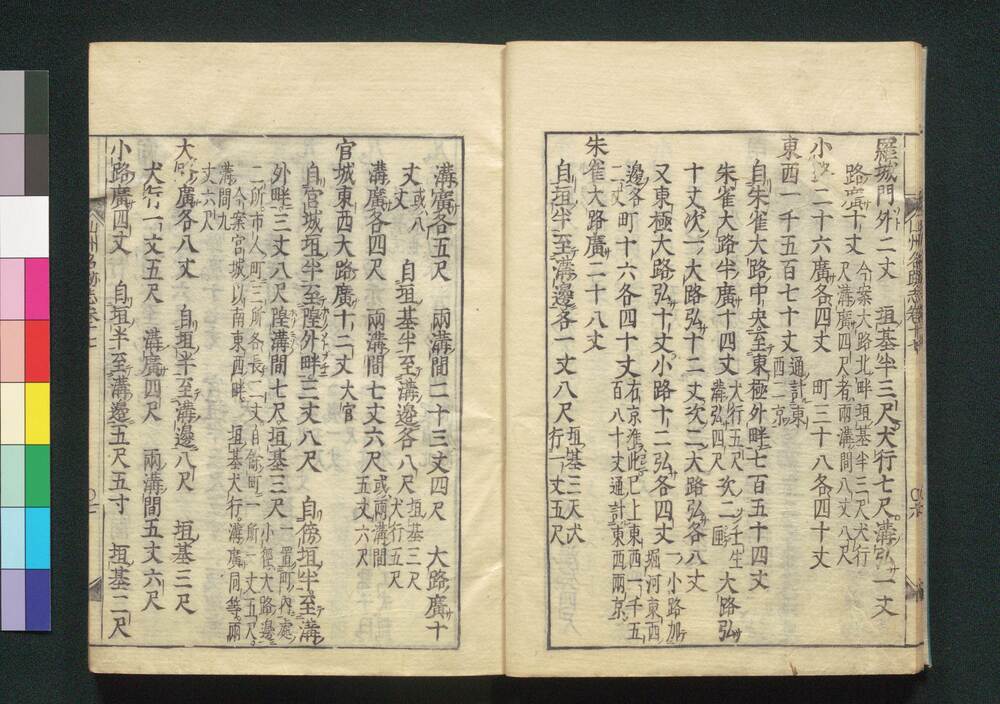 羅城門外二丈　垣基半三尺犬行七尺溝弘一丈
路廣十丈　今案大路北畔垣基半三尺犬行
尺溝廣四尺者兩溝間八丈八尺
小　二十六廣各四丈　町三十八各四十丈
東西一千五百七十丈　通計東
西二京
自朱雀大路中央至東極外畔七百五十四丈
朱雀大路半廣十四丈　犬行五尺
溝弘四尺　次一　大路弘
十丈次一大路弘十二丈次二大路弘各八丈
又東極大路弘十丈小路十二弘各四丈　小路加
堀河東西
邊各
二丈　町十六各四十丈　右京准此已上東西一千五
百八十丈通計東西兩京
朱雀大路廣二十八丈
自垣半至溝邊各一丈八尺　垣基三尺犬
行一丈五尺
溝廣各五尺　兩溝間二十三丈四尺　大路廣十
丈　或八
丈　自垣基半至溝邊各八尺　垣基三尺
犬行五尺
溝廣各四尺　兩溝間七丈六尺　或兩溝間
五丈六尺
宮城東西大路廣十二丈　大宮
自宮城垣半至隍外畔三丈八尺　自傍垣半至溝
外畔三丈八尺隍溝間七尺垣基三尺　一置町內處
小徑大路邊
二所市人町三所各長二丈自餘町一所一丈五尺
溝間九
丈六尺　今案宮城以南東西畔垣基犬行溝廣同等兩
大路廣各八丈　自垣半至溝邊八尺　垣基三尺
犬行一丈五尺　溝廣四尺　兩溝間五丈六尺
小路廣四丈　自垣半至溝邊五尺五寸　垣基二尺
山州名跡志卷十七